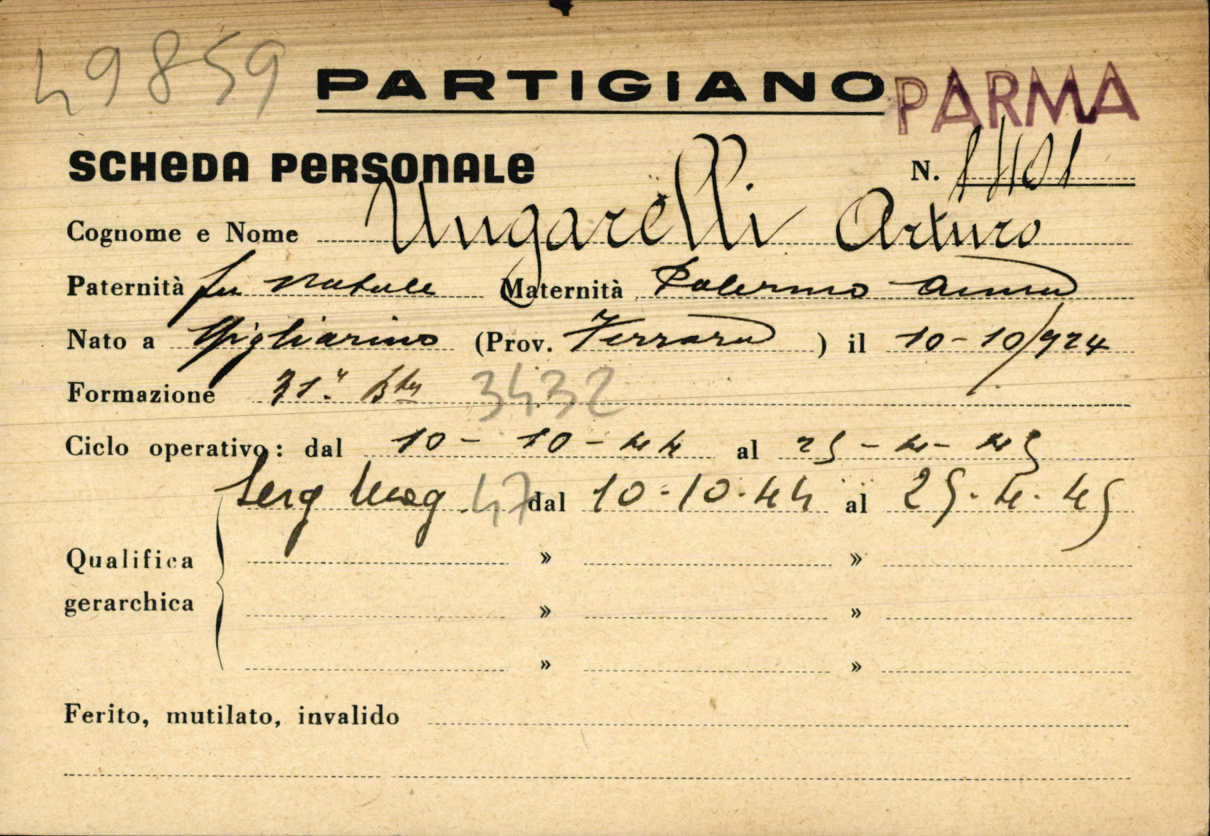 49859 PARTIGIANO PARMA
SCHEDA PERSONALE N. 1401
Cognome e Nome Ungarelli Arturo
Paternità fu Natale Maternità Palermo Anna
Nato a Migliarino (Prov. Ferrara) il 10-10/924
Formazione 31ª Bta 3432
Ciclo operativo: dal 10-10-44 al 25-4-45
Serg Magg. 47 dal 10.10.44 al 25.4.45
Qualifica » »
gerarchica » »
» »
Ferito, mutilato, invalido